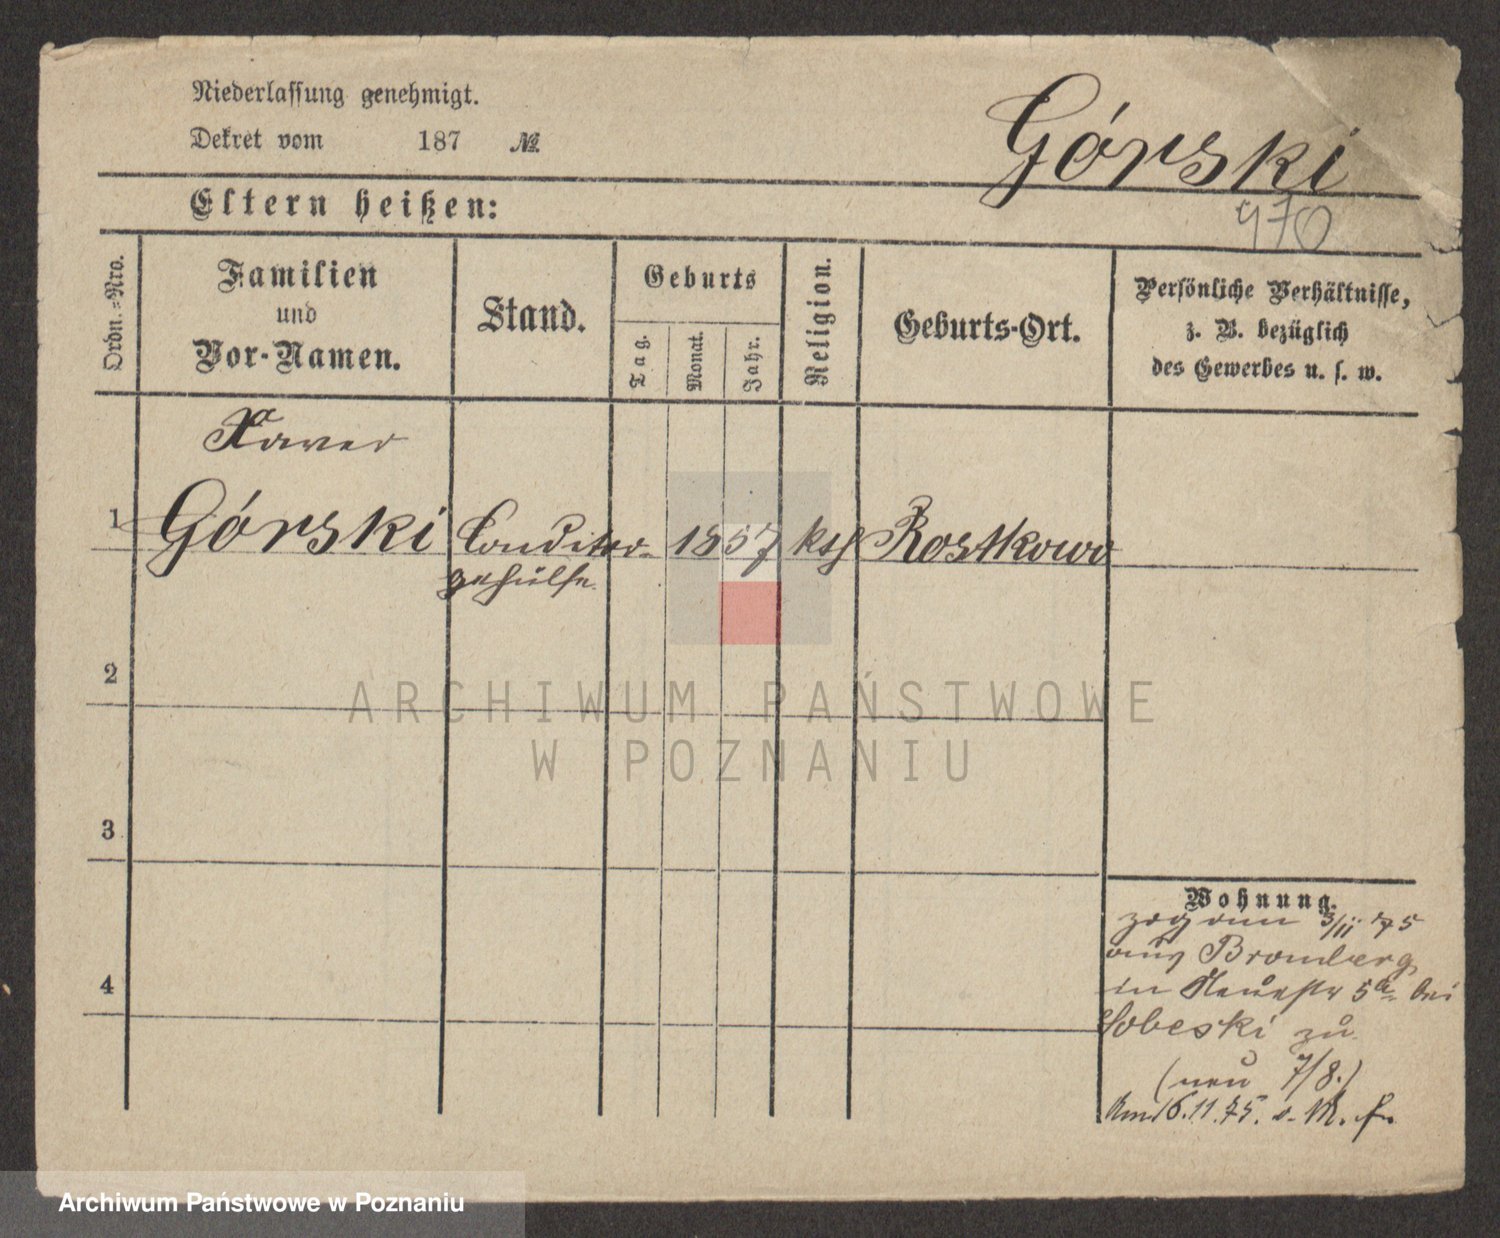 Niederlassung genehmigt.
Dekret vom 187 №
Górski
970
Eltern heißen:
Ordn.-Nro.
Familien
und
Vor-Namen.
Stand.
Geburts
Tag.
Monat.
Jahr.
Religion.
Geburts-Ort.
Persönliche Verhältnisse,
z. B. bezüglich
des Gewerbes u. s. w.
Xaver
1 Górski Conditor- 1857 kth Rostkowo
gehülfe
2
3
4
Wohnung.
zog am 3/11 75
aus Bromberg
in Neuestr 5 bei
Sobeski zu
(neu 7/8.)
16.11.75.
ARCHIWUM PAŃSTWOWE
W POZNANIU
Archiwum Państwowe w Poznaniu